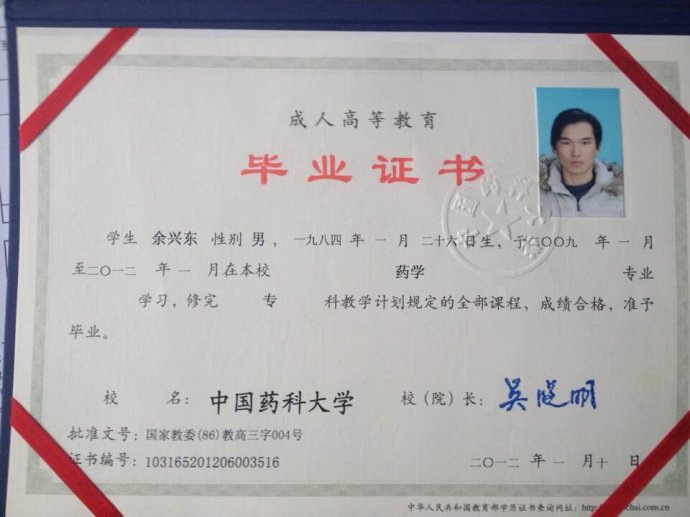 成人高等教育
毕业证书
学生 余兴东 性别 男，一九八四 年 一 月 二十六日生，于二〇〇九 年 一 月
至二〇一二 年 一 月在本校 药学 专业
学习，修完 专 科教学计划规定的全部课程，成绩合格，准予
毕业。
校 名：中国药科大学 校（院）长：吴晓明
批准文号：国家教委(86)教高三字004号
证书编号：103165201206003516 二〇一二 年 一 月 十 日
中华人民共和国教育部学历证书查询网址：http://www.chsi.com.cn